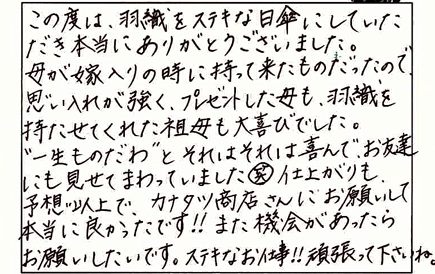 この度は、羽織をステキな日傘にしていた
だき本当にありがとうございました。
母が嫁入りの時に持って来たものだったので、
思い入れが強く、プレゼントした母も、羽織を
持たせてくれた祖母も大喜びでした。
"一生ものだわ"とそれはそれは喜んで、お友達
にも見せてまわっていました㊗仕上がりも、
予想以上で、カナタツ商店さんにお願いして
本当に良かったです!!また機会があったら
お願いしたいです。ステキなお仕事!!頑張って下さいね。